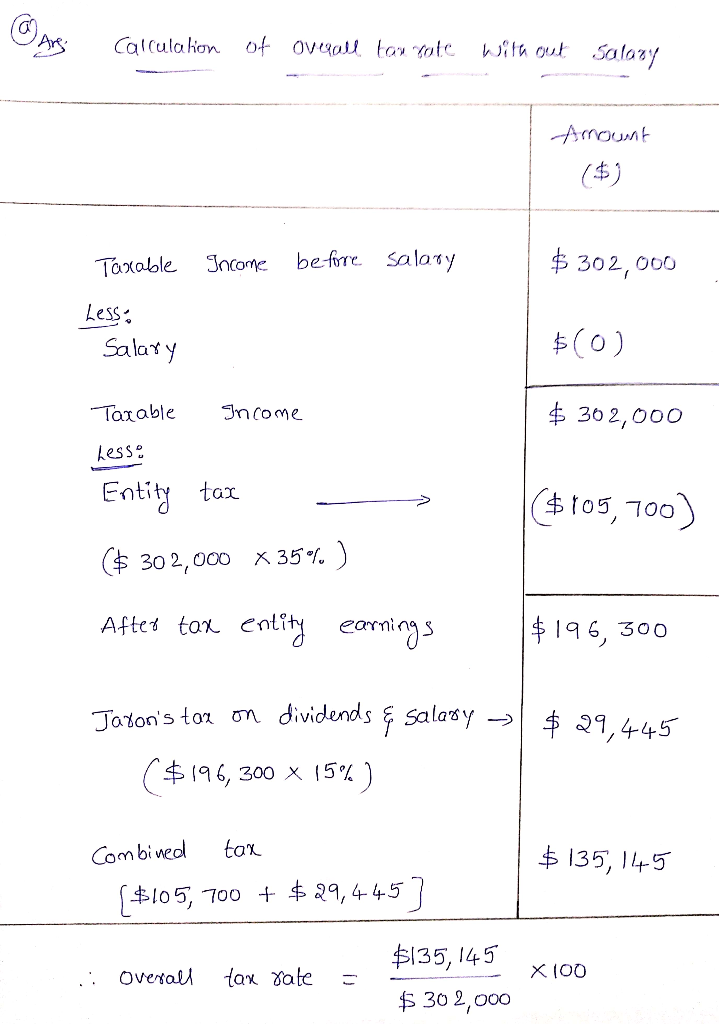 (a) Ans: Calculation of overall tax rate without Salary
Amount
($)
Taxable Income before salary $ 302,000
Less:
Salary $(0)
Taxable Income $ 302,000
Less:
Entity tax → ($105,700)
($ 302,000 × 35%)
After tax entity earnings $196,300
Jaron's tax on dividends & salary → $ 29,445
($196,300 × 15%)
Combined tax $ 135,145
[$105,700 + $29,445]
∴ Overall tax rate = $135,145 / $302,000 × 100